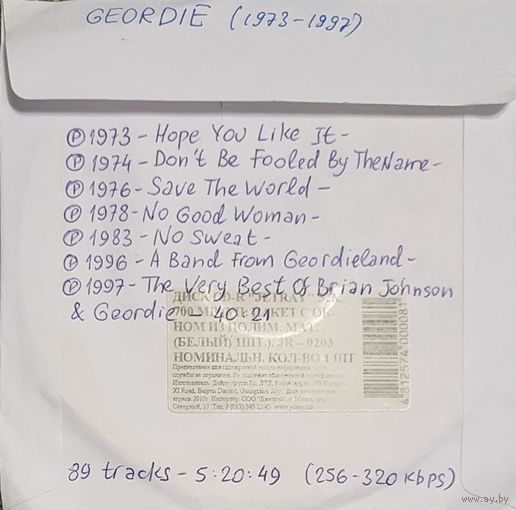 GEORDIE (1973-1997)
Ⓟ 1973 - Hope You Like It -
Ⓟ 1974 - Don't Be Fooled By The Name -
Ⓟ 1976 - Save The World -
Ⓟ 1978 - No Good Woman -
Ⓟ 1983 - No Sweat -
Ⓟ 1996 - A Band From Geordieland -
Ⓟ 1997 - The Very Best Of Brian Johnson
& Geordie - 40:21
ДИСК CD-R "JETRAY"
700 ПАКЕТ С ОК-
НОМ ИЗ ПОЛИМ. МАТ.
(БЕЛЫЙ) 1ШТ.). JR - 9203
НОМИНАЛЬН. КОЛ-ВО 1 ШТ
4 812574 000081
89 tracks - 5:20:49 (256-320 kbps)
www.ay.by